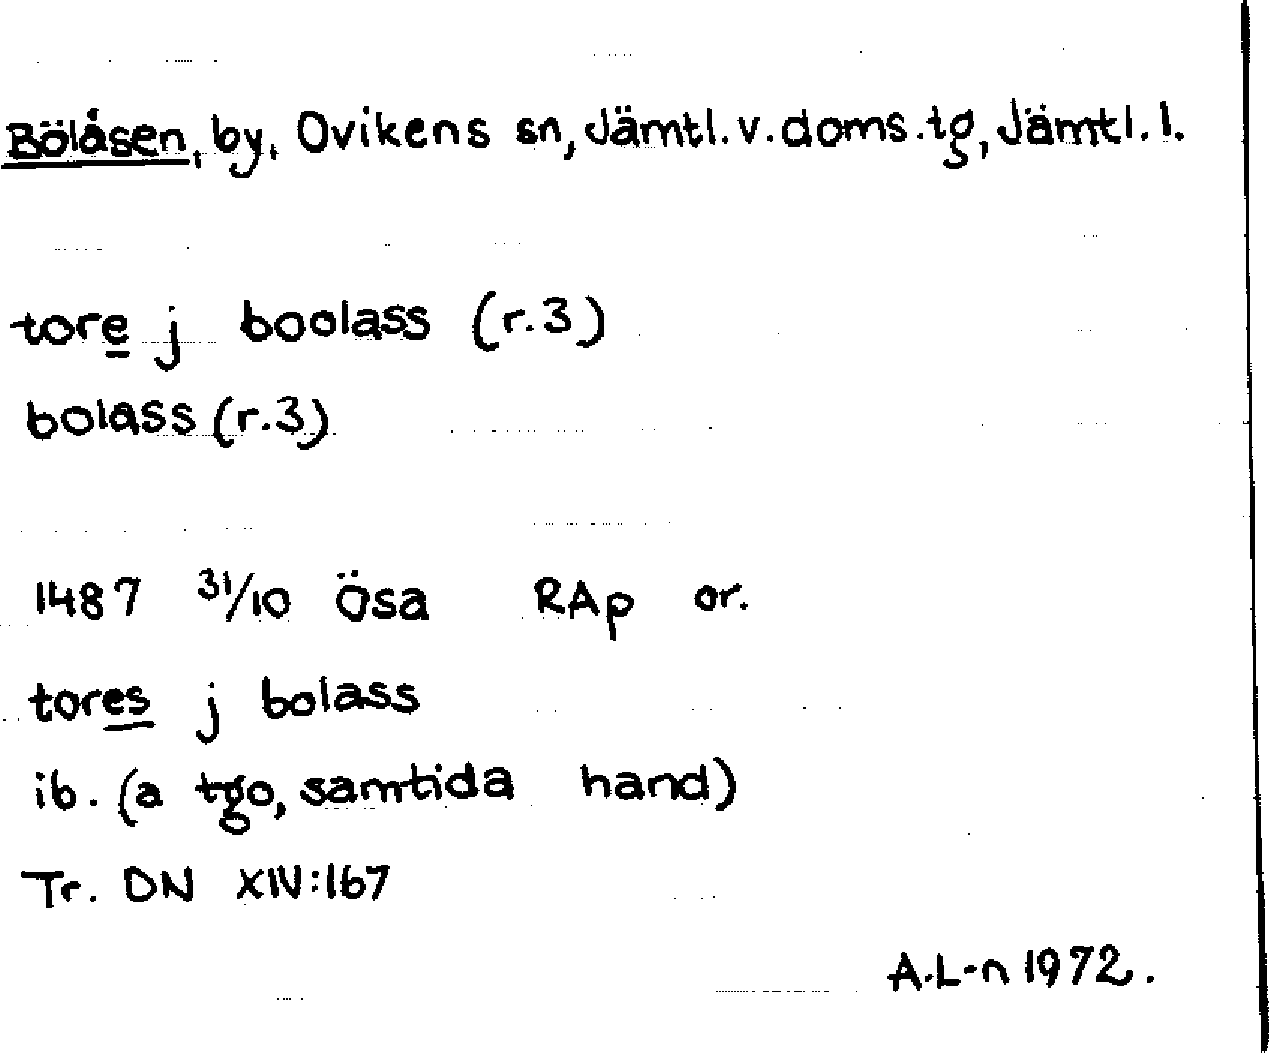 Bölåsen, by, Ovikens sn, Jämtl. v. doms. tg, Jämtl. l.
tore j boolass (r. 3)
bolass (r. 3)
1487 31/10 Ösa RAp or.
tores j bolass
ib. (a tgo, samtida hand)
Tr. DN XIV:167
A. L-n 1972.